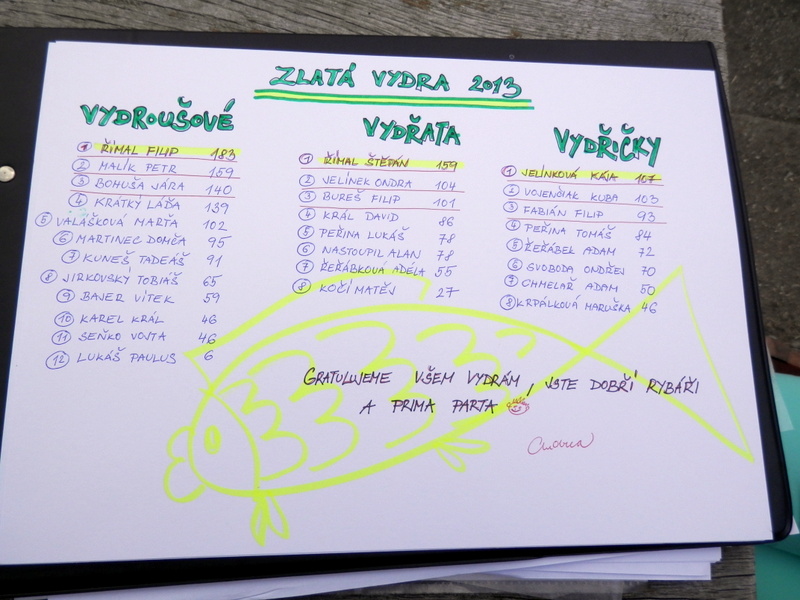 ZLATÁ VYDRA 2013
VYDROUŠOVÉ
1 ŘÍMAL FILIP 183
2 MALÍK PETR 159
3 BOHUŠA JÁRA 140
4 KRÁTKÝ LÁĎA 139
5 VALÁŠKOVÁ MARŤA 102
6 MARTINEC DOMČA 95
7 KUNEŠ TADEÁŠ 91
8 JIRKOVSKÝ TOBIÁŠ 65
9 BAJER VÍTEK 59
10 KAREL KRÁL 46
11 SEŇKO VOJTA 46
12 LUKÁŠ PAULUS 6
VYDŘATA
1 ŘÍMAL ŠTĚPÁN 159
2 JELÍNEK ONDRA 104
3 BUREŠ FILIP 101
4 KRÁL DAVID 86
5 PEŘINA LUKÁŠ 78
6 NASTOUPIL ALAN 78
7 ŘEŘÁBKOVÁ ADÉLA 55
8 KOČÍ MATĚJ 27
VYDŘIČKY
1 JELÍNKOVÁ KÁJA 107
2 VOJENČIAK KUBA 103
3 FABIÁN FILIP 93
4 PEŘINA TOMÁŠ 84
5 ŘEŘÁBEK ADAM 72
6 SVOBODA ONDŘEJ 70
7 CHMELAŘ ADAM 50
8 KRPÁLKOVÁ MARUŠKA 46
GRATULUJEME VŠEM VYDRÁM, JSTE DOBŘÍ RYBÁŘI
A PRIMA PARTA
Andrea